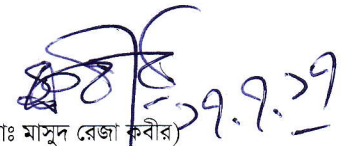 ১৭.৭.১৭
াঃ মাসুদ রেজা কবীর)